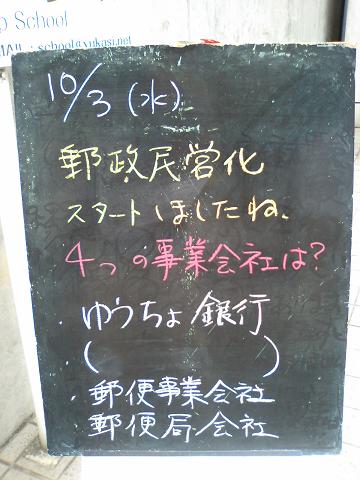 School
MAIL : school@yukasi.net
10/3 (水)
郵政民営化
スタートしましたね、
4つの事業会社は?
・ゆうちょ銀行
・(　　　　　)
・郵便事業会社
郵便局会社